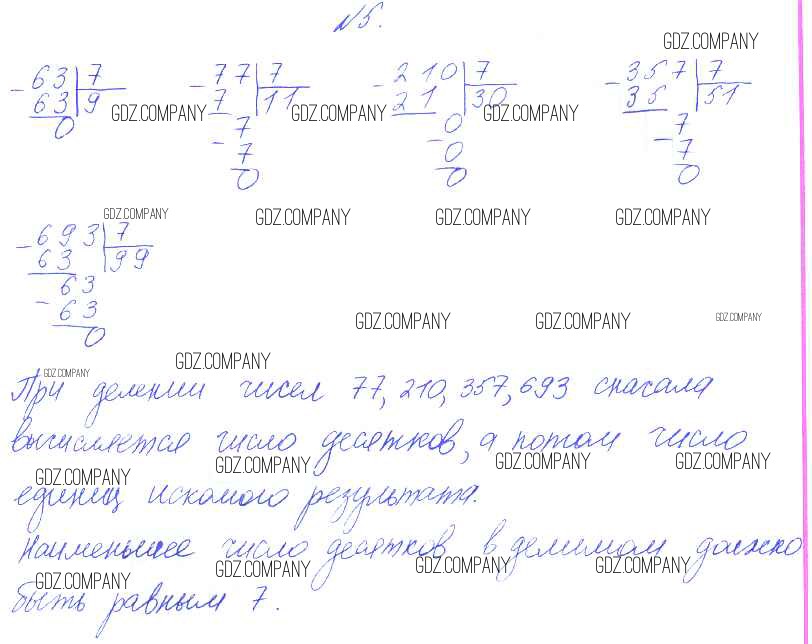 №5.
GDZ.COMPANY
- 63 | 7 - 77 | 7 - 210 | 7 - 357 | 7
63 | 9 7 | 11 21 | 30 35 | 51
GDZ.COMPANY GDZ.COMPANY GDZ.COMPANY
0 - 7 - 0 - 7
7 0 7
0 0 0
GDZ.COMPANY GDZ.COMPANY GDZ.COMPANY GDZ.COMPANY
- 693 | 7
63 | 99
- 63
63
0
GDZ.COMPANY GDZ.COMPANY GDZ.COMPANY
GDZ.COMPANY GDZ.COMPANY
При делении чисел 77, 210, 357, 693 сначала
вычисляется число десятков, а потом число
GDZ.COMPANY GDZ.COMPANY GDZ.COMPANY GDZ.COMPANY
единиц искомого результата.
Наименьшее число десятков в делимом должно
GDZ.COMPANY GDZ.COMPANY GDZ.COMPANY GDZ.COMPANY
быть равным 7.